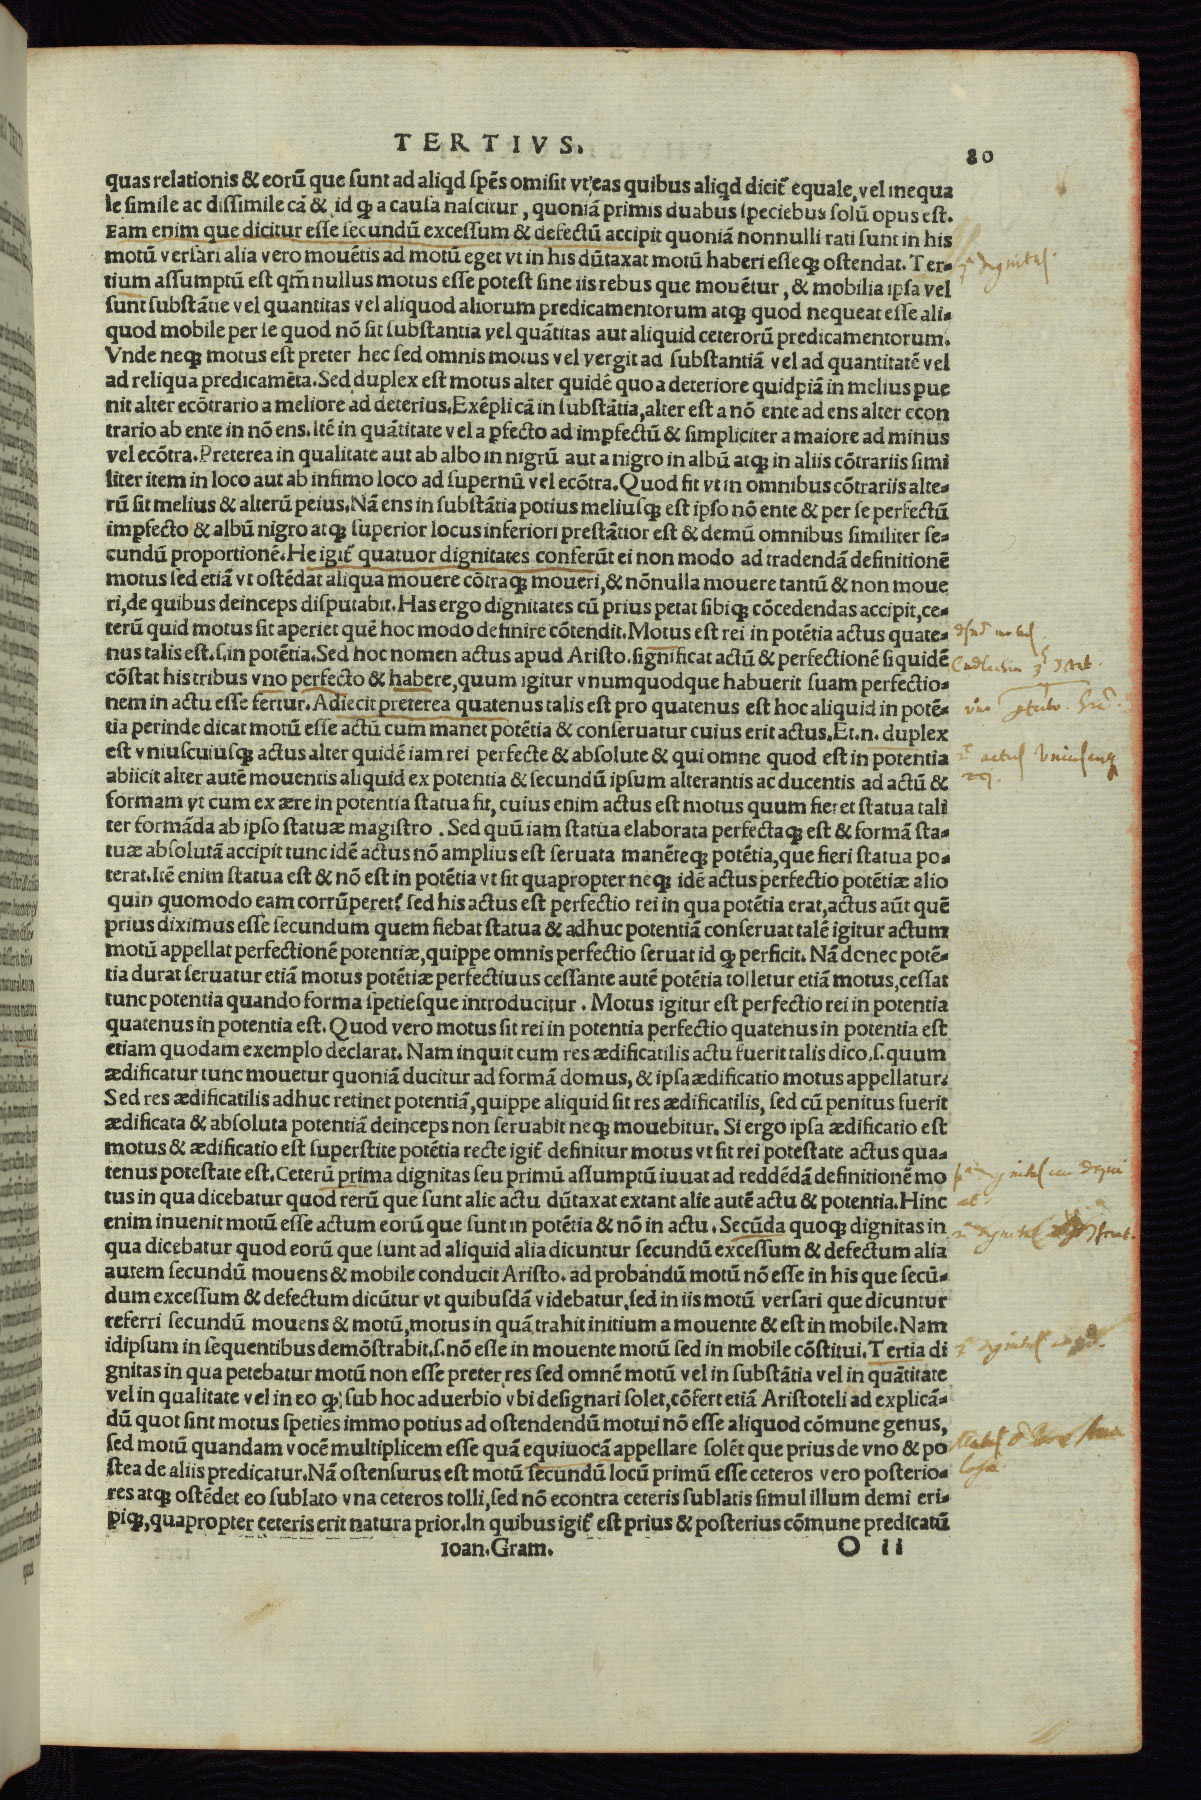 TERTIVS.
80
quas relationis & eorũ que sunt ad aliqd spẽs omisit vt eas quibus aliqd dicit̃ equale, vel inequa
le simile ac dissimile cã & id qȝ a causa nascitur, quoniã primis duabus speciebus solũ opus est.
Eam enim que dicitur esse secundũ excessum & defectũ accipit quoniã nonnulli rati sunt in his
motũ versari alia vero mouẽtis ad motũ eget vt in his dũtaxat motũ haberi esseqȝ ostendat. Ter-
tium assumptũ est qm̃ nullus motus esse potest sine iis rebus que mouẽtur, & mobilia ipsa vel
sunt substãtie vel quantitas vel aliquod aliorum predicamentorum atqȝ quod nequeat esse ali-
quod mobile per se quod nõ sit substantia vel quãtitas aut aliquid ceterorũ predicamentorum.
Vnde neqȝ motus est preter hec sed omnis motus vel vergit ad substantiã vel ad quantitatẽ vel
ad reliqua predicamẽta. Sed duplex est motus alter quidẽ quo a deteriore quidpiã in melius pue
nit alter ecõtrario a meliore ad deterius. Exẽpli cã in substãtia, alter est a nõ ente ad ens alter econ
trario ab ente in nõ ens. Itẽ in quãtitate vel a pfecto ad impfectũ & simpliciter a maiore ad minus
vel ecõtra. Preterea in qualitate aut ab albo in nigrũ aut a nigro in albũ atqȝ in aliis cõtrariis simi
liter item in loco aut ab infimo loco ad supernũ vel ecõtra. Quod fit vt in omnibus cõtrariis alte-
rũ sit melius & alterũ peius. Nã ens in substãtia potius meliusqȝ est ipso nõ ente & per se perfectũ
impfecto & albũ nigro atqȝ superior locus inferiori prestãtior est & demũ omnibus similiter se-
cundũ proportionẽ. He igit̃ quatuor dignitates conferũt ei non modo ad tradendã definitionẽ
motus sed etiã vt ostẽdat aliqua mouere cõtraqȝ moueri, & nõnulla mouere tantũ & non moue
ri, de quibus deinceps disputabit. Has ergo dignitates cũ prius petat sibiqȝ cõcedendas accipit, ce-
terũ quid motus sit aperiet quẽ hoc modo definire cõtendit. Motus est rei in potẽtia actus quate-
nus talis est. s. in potẽtia. Sed hoc nomen actus apud Aristo. significat actũ & perfectionẽ siquidẽ
cõstat his tribus vno perfecto & habere, quum igitur vnumquodque habuerit suam perfectio-
nem in actu esse fertur. Adiecit preterea quatenus talis est pro quatenus est hoc aliquid in potẽ-
tia perinde dicat motũ esse actũ cum manet potẽtia & conseruatur cuius erit actus. Et. n. duplex
est vniuscuiusqȝ actus alter quidẽ iam rei perfecte & absolute & qui omne quod est in potentia
abiicit alter autẽ mouentis aliquid ex potentia & secundũ ipsum alterantis ac ducentis ad actũ &
formam vt cum ex ære in potentia statua fit, cuius enim actus est motus quum fieret statua tali
ter formãda ab ipso statuæ magistro. Sed quũ iam statua elaborata perfectaqȝ est & formã sta-
tuæ absolutã accipit tunc idẽ actus nõ amplius est seruata manẽteqȝ potẽtia, que fieri statua po-
terat. Itẽ enim statua est & nõ est in potẽtia vt sit quapropter neqȝ idẽ actus perfectio potẽtiæ alio
quin quomodo eam corrũperet̃ sed his actus est perfectio rei in qua potẽtia erat, actus aũt quẽ
prius diximus esse secundum quem fiebat statua & adhuc potentiã conseruat talẽ igitur actum
motũ appellat perfectionẽ potentiæ, quippe omnis perfectio seruat id qȝ perficit. Nã donec potẽ-
tia durat seruatur etiã motus potẽtiæ perfectiuus cessante autẽ potẽtia tolletur etiã motus, cessat
tunc potentia quando forma spetiesque introducitur. Motus igitur est perfectio rei in potentia
quatenus in potentia est. Quod vero motus sit rei in potentia perfectio quatenus in potentia est
etiam quodam exemplo declarat. Nam inquit cum res ædificatilis actu fuerit talis dico, s. quum
ædificatur tunc mouetur quoniã ducitur ad formã domus, & ipsa ædificatio motus appellatur.
Sed res ædificatilis adhuc retinet potentiã, quippe aliquid sit res ædificatilis, sed cũ penitus fuerit
ædificata & absoluta potentiã deinceps non seruabit neqȝ mouebitur. Si ergo ipsa ædificatio est
motus & ædificatio est superstite potẽtia recte igit̃ definitur motus vt sit rei potestate actus qua-
tenus potestate est. Ceterũ prima dignitas seu primũ assumptũ iuuat ad reddẽdã definitionẽ mo
tus in qua dicebatur quod rerũ que sunt alie actu dũtaxat extant alie autẽ actu & potentia. Hinc
enim inuenit motũ esse actum eorũ que sunt in potẽtia & nõ in actu. Secũda quoqȝ dignitas in
qua dicebatur quod eorũ que sunt ad aliquid alia dicuntur secundũ excessum & defectum alia
autem secundũ mouens & mobile conducit Aristo. ad probandũ motũ nõ esse in his que secũ-
dum excessum & defectum dicũtur vt quibusdã videbatur, sed in iis motũ versari que dicuntur
referri secundũ mouens & motũ, motus in quã trahit initium a mouente & est in mobile. Nam
idipsum in sequentibus demõstrabit. s. nõ esse in mouente motũ sed in mobile cõstitui. Tertia di
gnitas in qua petebatur motũ non esse preter res sed omnẽ motũ vel in substãtia vel in quãtitate
vel in qualitate vel in eo qȝ sub hoc aduerbio vbi designari solet, cõfert etiã Aristoteli ad explicã-
dũ quot sint motus speties immo potius ad ostendendũ motui nõ esse aliquod cõmune genus,
sed motũ quandam vocẽ multiplicem esse quã equiuocã appellare solẽt que prius de vno & po
stea de aliis predicatur. Nã ostensurus est motũ secundũ locũ primũ esse ceteros vero posterio-
res atqȝ ostẽdet eo sublato vna ceteros tolli, sed nõ econtra ceteris sublatis simul illum demi eri-
piqȝ, quapropter ceteris erit natura prior. In quibus igit̃ est prius & posterius cõmune predicatũ
Ioan. Gram. O ii